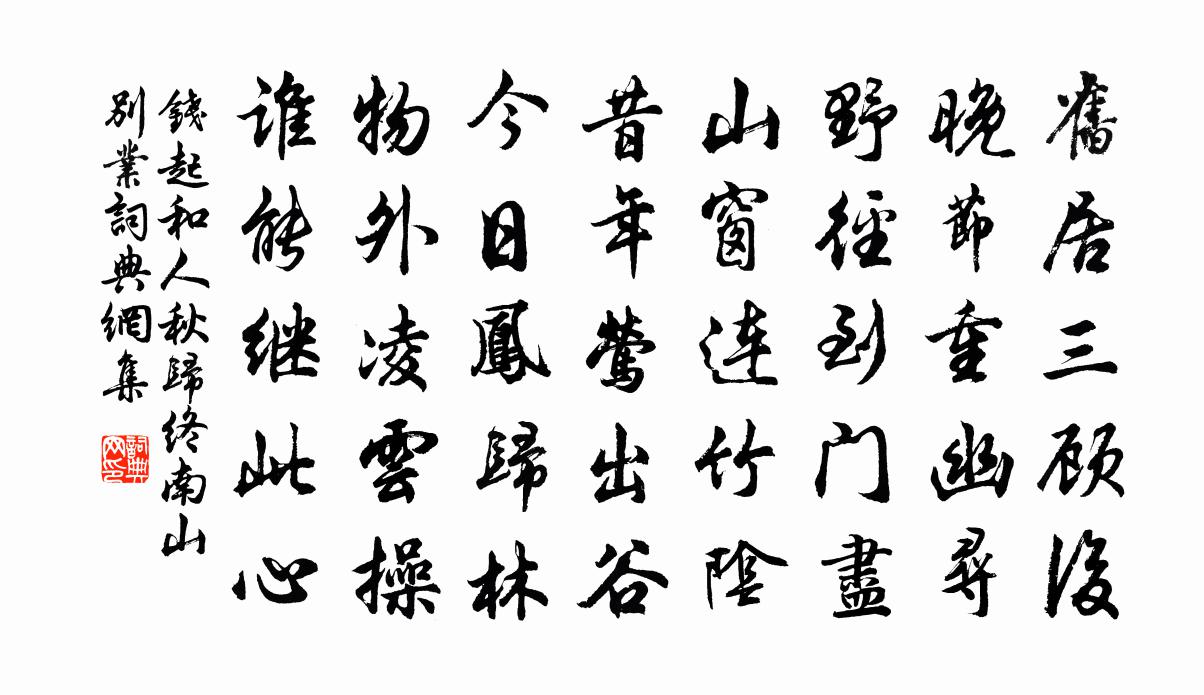 舊居三顾後
晚節重幽尋
野徑到门盡
山窗連竹陰
昔年鶯出谷
今日鳳歸林
物外凌雲操
谁能继此心
錢起和人秋歸終南山
别業詞典網集
詞典
网印